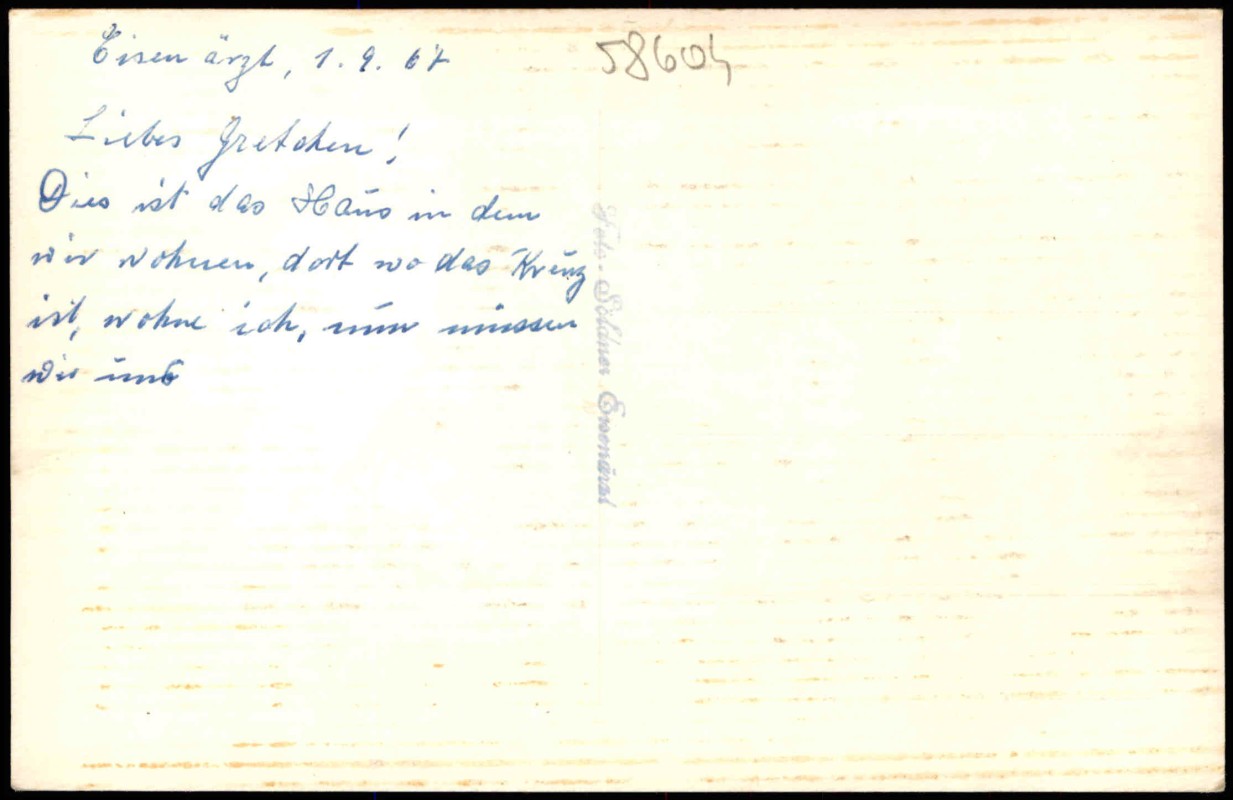 Eisenärzt, 1. 9. 67
58604
Liebes Gretchen!
Dies ist das Haus in dem
wir wohnen, dort wo das Kreuz
ist, wohne ich, nun müssen
wir uns
Foto-Söldner Eisenärzt